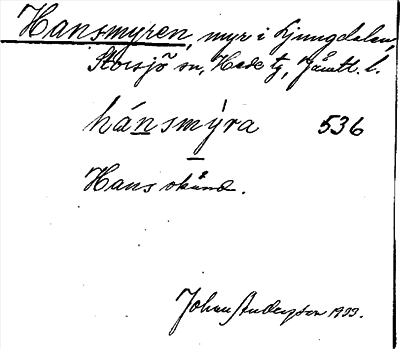 Hansmyren, myr i Ljungdalen,
Storsjö sn, Hede tg, Jämtl. l.
hánsmỳra 536
Hans okänd.
Johan Anderzson 1933.